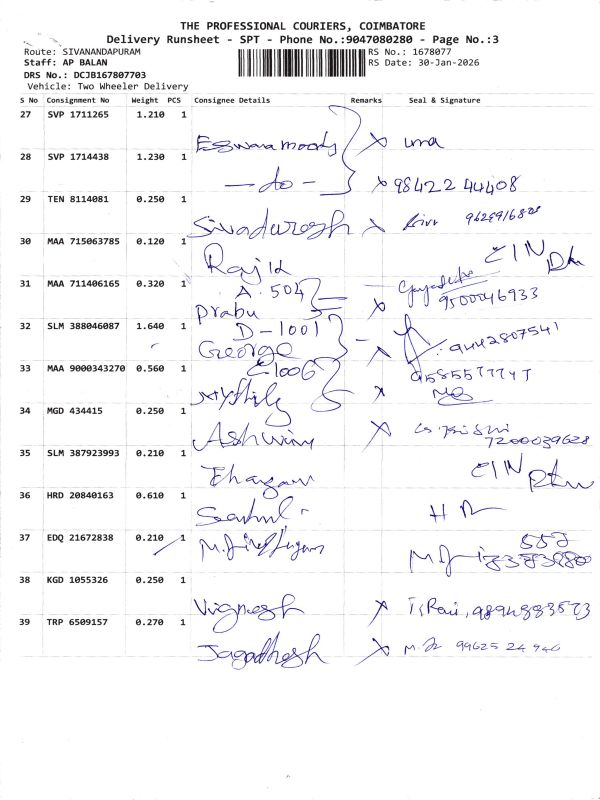 THE PROFESSIONAL COURIERS, COIMBATORE
Delivery Runsheet - SPT - Phone No.:9047080280 - Page No.:3
Route: SIVANANDAPURAM RS No.: 1678077
Staff: AP BALAN RS Date: 30-Jan-2026
DRS No.: DCJB167807703
Vehicle: Two Wheeler Delivery
S No Consignment No Weight PCS Consignee Details Remarks Seal & Signature
27 SVP 1711265 1.210 1
Eswara moody x uma
28 SVP 1714438 1.230 1
— do — x 98422 44408
29 TEN 8114081 0.250 1
Sivadurgsh x
30 MAA 715063785 0.120 1
Raj K
31 MAA 711406165 0.320 1
A. 504
Prabu x 9500046933
32 SLM 388046087 1.640 1
D-1001
George x 9442807541
33 MAA 9000343270 0.560 1
C1006
x
34 MGD 434415 0.250 1
Ashwin x 7200039628
35 SLM 387923993 0.210 1
36 HRD 20840163 0.610 1
37 EDQ 21672838 0.210 1
38 KGD 1055326 0.250 1
Vignesh x
39 TRP 6509157 0.270 1
Jagadhesh x 99625 24 940